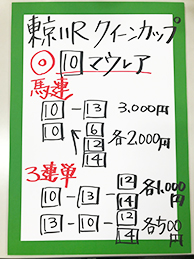 東京11R クイーンカップ
◎ 10 マウレア
馬連
10 - 13 3,000円
10 6 12 14 各2,000円
3連単
10 - 13 - 12 14 各1,000円
13 - 10 - 12 14 各500円